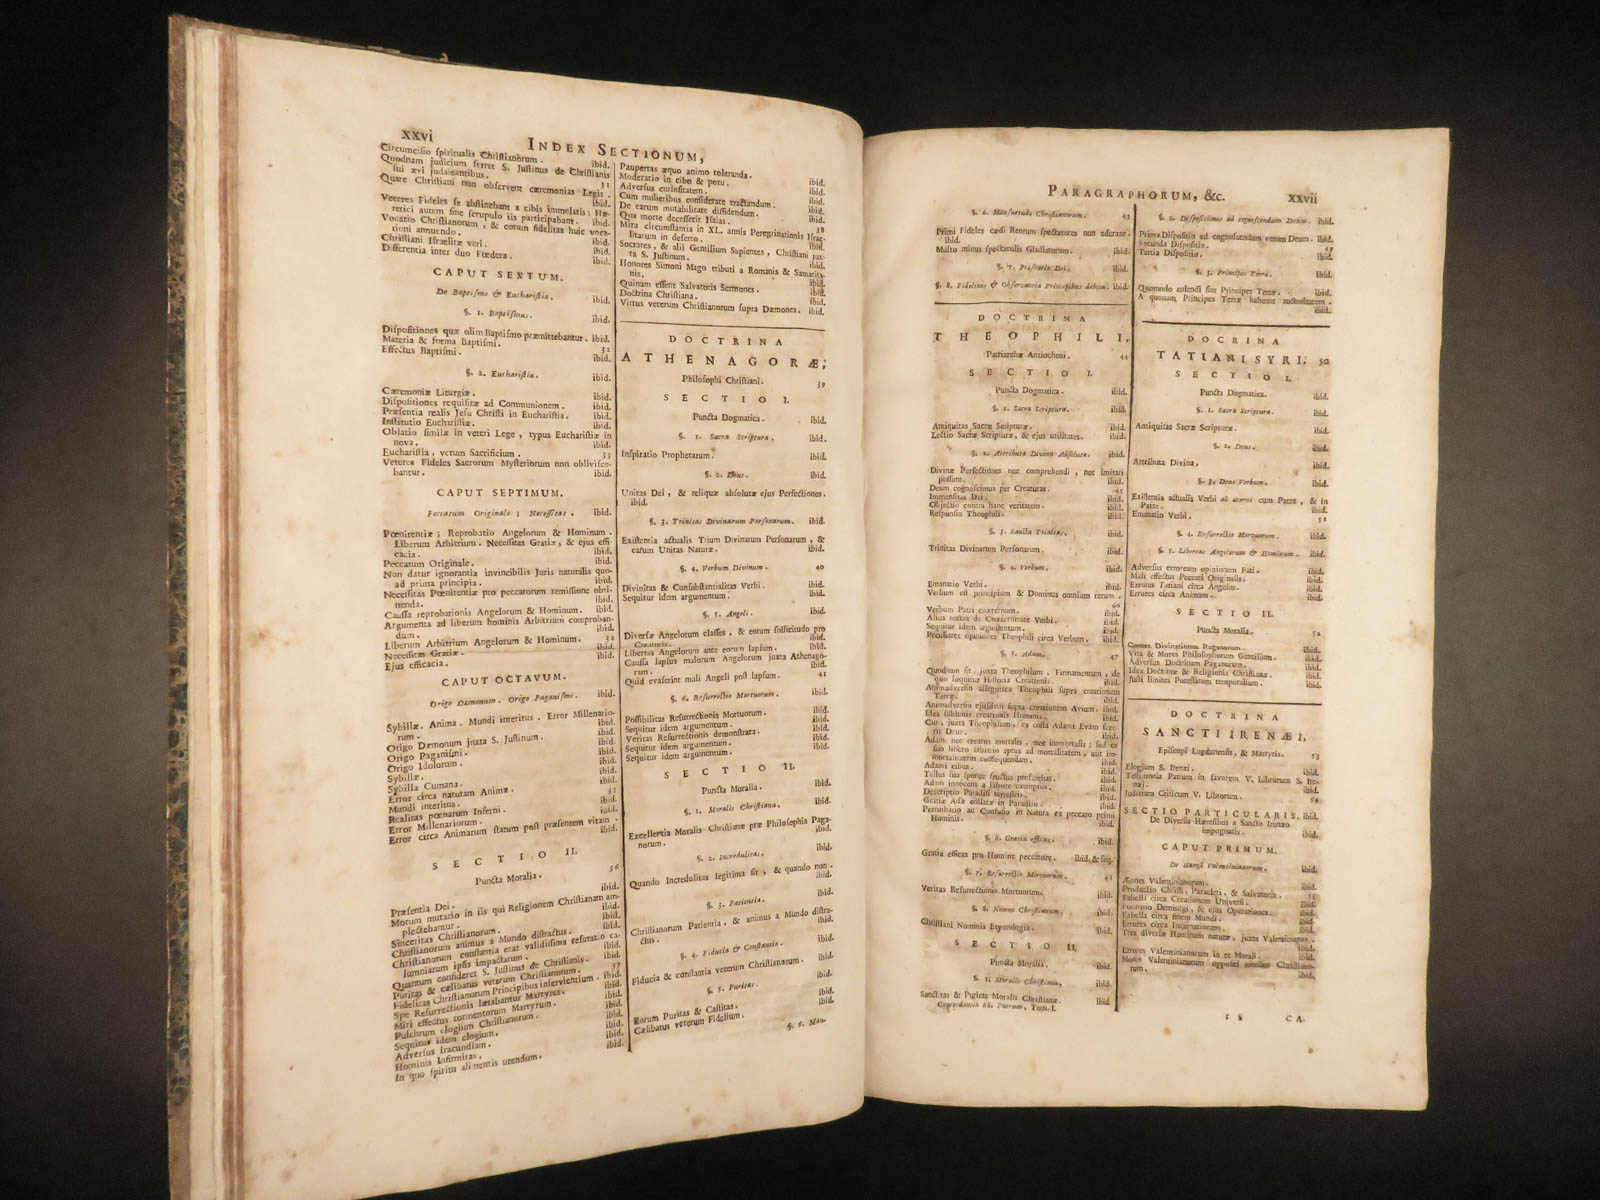 xxvi
INDEX SECTIONUM,
Circumcisio spiritualis Christianorum. ibid.
Quodnam judicium ferret S. Justinus de Christianis
sui ævi judaisantibus. 31
Quare Christiani non observent cæremonias Legis.
ibid.
Veteres Fideles se abstinebant a cibis immolatis; Hæ-
retici autem sine scrupulo iis participabant. ibid.
Vocatio Christianorum, & eorum fidelitas huic voca-
tioni annuendo. ibid.
Christiani Israelitæ veri. ibid.
Differentia inter duo Fœdera. ibid.
CAPUT SEXTUM.
De Baptismo & Eucharistia. ibid.
§. 1. Baptismus. ibid.
Dispositiones quæ olim Baptismo præmittebantur. ibid.
Materia & forma Baptismi. 32
Effectus Baptismi. ibid.
§. 2. Eucharistia. ibid.
Cæremoniæ Liturgiæ. ibid.
Dispositiones requisitæ ad Communionem. ibid.
Præsentia realis Jesu Christi in Eucharistia. ibid.
Institutio Eucharistiæ. ibid.
Oblatio similæ in veteri Lege, typus Eucharistiæ in
nova. ibid.
Eucharistia, verum Sacrificium. 33
Veteres Fideles Sacrorum Mysteriorum non oblivisce-
bantur. ibid.
CAPUT SEPTIMUM.
Peccatum Originale; Necessitas. ibid.
Pœnitentiæ; Reprobatio Angelorum & Hominum.
Liberum Arbitrium. Necessitas Gratiæ, & ejus effi-
cacia. ibid.
Peccatum Originale. ibid.
Non datur ignorantia invincibilis Juris naturalis quo-
ad prima principia. ibid.
Necessitas Pœnitentiæ pro peccatorum remissione obti-
nenda. ibid.
Caussa reprobationis Angelorum & Hominum. ibid.
Argumenta ad liberum hominis Arbitrium comproban-
dum. ibid.
Liberum Arbitrium Angelorum & Hominum. 34
Necessitas Gratiæ. ibid.
Ejus efficacia. ibid.
CAPUT OCTAVUM.
Origo Dæmonum. Origo Paganismi. ibid.
Sybillæ. Anima. Mundi interitus. Error Millenario-
rum. ibid.
Origo Dæmonum juxta S. Justinum. ibid.
Origo Paganismi. ibid.
Origo Idolorum. ibid.
Sybillæ. ibid.
Sybilla Cumana. ibid.
Error circa naturam Animæ. 35
Mundi interitus. ibid.
Realitas pœnarum Inferni. ibid.
Error Millenariorum. ibid.
Error circa Animarum statum post præsentem vitam. ibid.
SECTIO II.
Puncta Moralia. 36
Præsentia Dei. ibid.
Morum mutatio in iis qui Religionem Christianam am-
plectebantur. ibid.
Sinceritas Christianorum. ibid.
Christianorum animus a Mundo distractus. ibid.
Christianorum constantia erat validissima refutatio ca-
lumniarum ipsis impactarum. ibid.
Quantum consideret S. Justinus de Christianis. 37
Puritas & cælibatus veterum Christianorum. ibid.
Fidelitas Christianorum Principibus inservientium. ibid.
Spe Resurrectionis lætabantur Martyres. ibid.
Miri effectus tormentorum Martyrum. ibid.
Pulchrum elogium Christianorum. ibid.
Sequitur idem elogium. ibid.
Adversus iracundiam. ibid.
Hominis Infirmitas. ibid.
In quo spiritu alimentis utendum. ibid.
Paupertas æquo animo toleranda. ibid.
Moderatio in cibo & potu. ibid.
Adversus curiositatem. ibid.
Cum mulieribus considerate tractandum. ibid.
De earum mutabilitate diffidendum. ibid.
Qua morte decesserit Isaias. 38
Mira circumstantia in XL. annis Peregrinationis Israe-
litarum in deserto. ibid.
Socrates, & alii Gentilium Sapientes, Christiani jux-
ta S. Justinum. ibid.
Honores Simoni Mago tributi a Romanis & Samarita-
nis. ibid.
Quinam essent Salvatoris Sermones. ibid.
Doctrina Christiana. ibid.
Virtus veterum Christianorum supra Dæmones. ibid.
DOCTRINA
ATHENAGORÆ;
Philosophi Christiani. 39
SECTIO I.
Puncta Dogmatica. ibid.
§. 1. Sacra Scriptura. ibid.
Inspiratio Prophetarum. ibid.
§. 2. Deus. ibid.
Unitas Dei, & reliquæ absolutæ ejus Perfectiones.
ibid.
§. 3. Trinitas Divinarum Personarum. ibid.
Existentia actualis Trium Divinarum Personarum, &
earum Unitas Naturæ. ibid.
§. 4. Verbum Divinum. 40
Divinitas & Consubstantialitas Verbi. ibid.
Sequitur idem argumentum. ibid.
§. 5. Angeli. ibid.
Diversæ Angelorum classes, & eorum sollicitudo pro
Creaturis. ibid.
Libertas Angelorum ante eorum lapsum. ibid.
Caussa lapsus malorum Angelorum juxta Athenago-
ram. ibid.
Quid evaserint mali Angeli post lapsum. 41
§. 6. Resurrectio Mortuorum. ibid.
Possibilitas Resurrectionis Mortuorum. ibid.
Sequitur idem argumentum. ibid.
Veritas Resurrectionis demonstrata. ibid.
Sequitur idem argumentum. ibid.
Sequitur idem argumentum. ibid.
SECTIO II.
Puncta Moralia. ibid.
§. 1. Moralis Christiana. ibid.
Excellentia Moralis Christianæ præ Philosophia Paga-
norum. ibid.
§. 2. Incredulitas. ibid.
Quando Incredulitas legitima sit, & quando non.
ibid.
§. 3. Patientia. ibid.
Christianorum Patientia, & animus a Mundo distra-
ctus. ibid.
§. 4. Fiducia & Constantia. ibid.
Fiducia & constantia veterum Christianorum. ibid.
§. 5. Puritas. ibid.
Eorum Puritas & Castitas. ibid.
Cælibatus veterum Fidelium. ibid.
§. 6. Man-
PARAGRAPHORUM, &c. xxvii
§. 6. Mansuetudo Christianorum. 43
Primi Fideles cædi Reorum spectatores non aderant.
ibid.
Multo minus spectaculis Gladiatorum. ibid.
§. 7. Præsentia Dei. ibid.
§. 8. Fidelitas & Observantia Principibus debita. ibid.
DOCTRINA
THEOPHILI,
Patriarchæ Antiocheni. 44
SECTIO I.
Puncta Dogmatica. ibid.
§. 1. Sacra Scriptura. ibid.
Antiquitas Sacræ Scripturæ. ibid.
Lectio Sacræ Scripturæ, & ejus utilitates. ibid.
§. 2. Attributa Divina Absoluta. ibid.
Divinæ Perfectiones nec comprehendi, nec imitari
possunt. ibid.
Deum cognoscimus per Creaturas. 45
Immensitas Dei. ibid.
Objectio contra hanc veritatem. ibid.
Responsio Theophili. ibid.
§. 3. Sancta Trinitas. ibid.
Trinitas Divinarum Personarum. ibid.
§. 4. Verbum. ibid.
Emanatio Verbi. ibid.
Verbum est principium & Dominus omnium rerum.
46
Verbum Patri coæternum. ibid.
Alius textus de Coæternitate Verbi. ibid.
Sequitur idem argumentum. ibid.
Peculiares opiniones Theophili circa Verbum. ibid.
§. 5. Adam. 47
Quodnam sit, juxta Theophilum, Firmamentum, de
quo loquitur Historia Creationis. ibid.
Animadversio allegorica Theophili supra creationem
Terræ. ibid.
Animadversio ejusdem supra creationem Avium. ibid.
Idea sublimis creationis Hominis. ibid.
Cur, juxta Theophilum, ex costa Adami Evam fece-
rit Deus. ibid.
Adam nec creatus mortalis, nec immortalis; sed ex
suo libero arbitrio aptus ad mortalitatem, aut im-
mortalitatem consequendam. ibid.
Adami cibus. ibid.
Tellus sua sponte fructus proferebat. ibid.
Adam innocens a labore exemptus. ibid.
Descriptio Paradisi terrestris. ibid.
Gratiæ Adæ collatæ in Paradiso. ibid.
Perturbatio ac Confusio in Natura ex peccato primi
Hominis. ibid.
§. 6. Gratia efficax. ibid.
Gratia efficax pro Homine peccatore. ibid. & seq.
§. 7. Resurrectio Mortuorum. 48
Veritas Resurrectionis Mortuorum. ibid.
§. 8. Nomen Christianum. ibid.
Christiani Nominis Etymologia. ibid.
SECTIO II.
Puncta Moralia. ibid.
§. 1. Moralis Christiana. ibid.
Sanctitas & Puritas Moralis Christianæ. ibid
Concordantia SS. Patrum, Tom. I.
§. 2. Dispositiones ad cognoscendum Deum. ibid.
Prima Dispositio ad cognoscendum verum Deum. ibid.
Secunda Dispositio. 49
Tertia Dispositio. ibid.
§. 3. Principes Terræ. ibid.
Quomodo colendi sint Principes Terræ. ibid.
A quonam Principes Terræ habeant auctoritatem.
ibid.
DOCRINA
TATIANI SYRI. 50
SECTIO I.
Puncta Dogmatica. ibid.
§. 1. Sacra Scriptura. ibid.
Antiquitas Sacræ Scripturæ. ibid.
§. 2. Deus. ibid.
Attributa Divina. ibid.
§. 3. Deus Verbum. ibid.
Existentia actualis Verbi ab æterno cum Patre, & in
Patre. ibid.
Emanatio Verbi. 51
§. 4. Resurrectio Mortuorum. ibid.
§. 5. Libertas Angelorum & Hominum. ibid.
Adversus erroream opinionem Fati. ibid.
Mali effectus Peccati Originalis. ibid.
Errores Tatiani circa Angelos. ibid.
Errores circa Animam. ibid.
SECTIO II.
Puncta Moralia. 52
Contra Divinationes Paganorum. ibid.
Vita & Mores Philosophorum Gentilium. ibid.
Adversus Doctrinam Paganorum. ibid.
Idea Doctrinæ & Religionis Christianæ. ibid.
Justi limites Potestatum temporalium. ibid.
DOCTRINA
SANCTI IRENÆI,
Episcopi Lugdunensis, & Martyris. 53
Elogium S. Irenæi. ibid.
Testimonia Patrum in favorem V. Librorum S. Ire-
næi. ibid.
Judicium Criticum V. Librorum. 54
SECTIO PARTICULARIS, ibid.
De Diversis Hæresibus a Sancto Irenæo
impugnatis. ibid.
CAPUT PRIMUM.
De Hæresi Valentinianorum. ibid.
Æones Valentinianorum. ibid.
Productio Christi, Paracleti, & Salvatoris. 55
Fabella circa Creationem Universi. ibid.
Formatio Demiurgi, & ejus Operationes. ibid.
Fabella circa finem Mundi. ibid.
Errores circa Incarnationem. ibid.
Tres diversæ Hominum naturæ, juxta Valentinianos.
ibid.
Errores Valentinianorum in re Morali. ibid.
Mores Valentinianorum oppositi moribus Christiano-
rum. ibid.
CA-